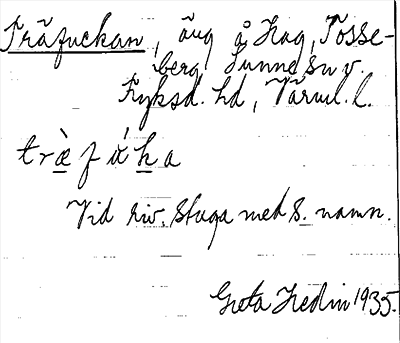 Träfuckan, äng å Hag, Tosse-
berg Sunne sn v.
Fryksd. hd, Värml. l.
træ̀fúka
Vid riv. stuga med s. namn.
Greta Hedin 1935.